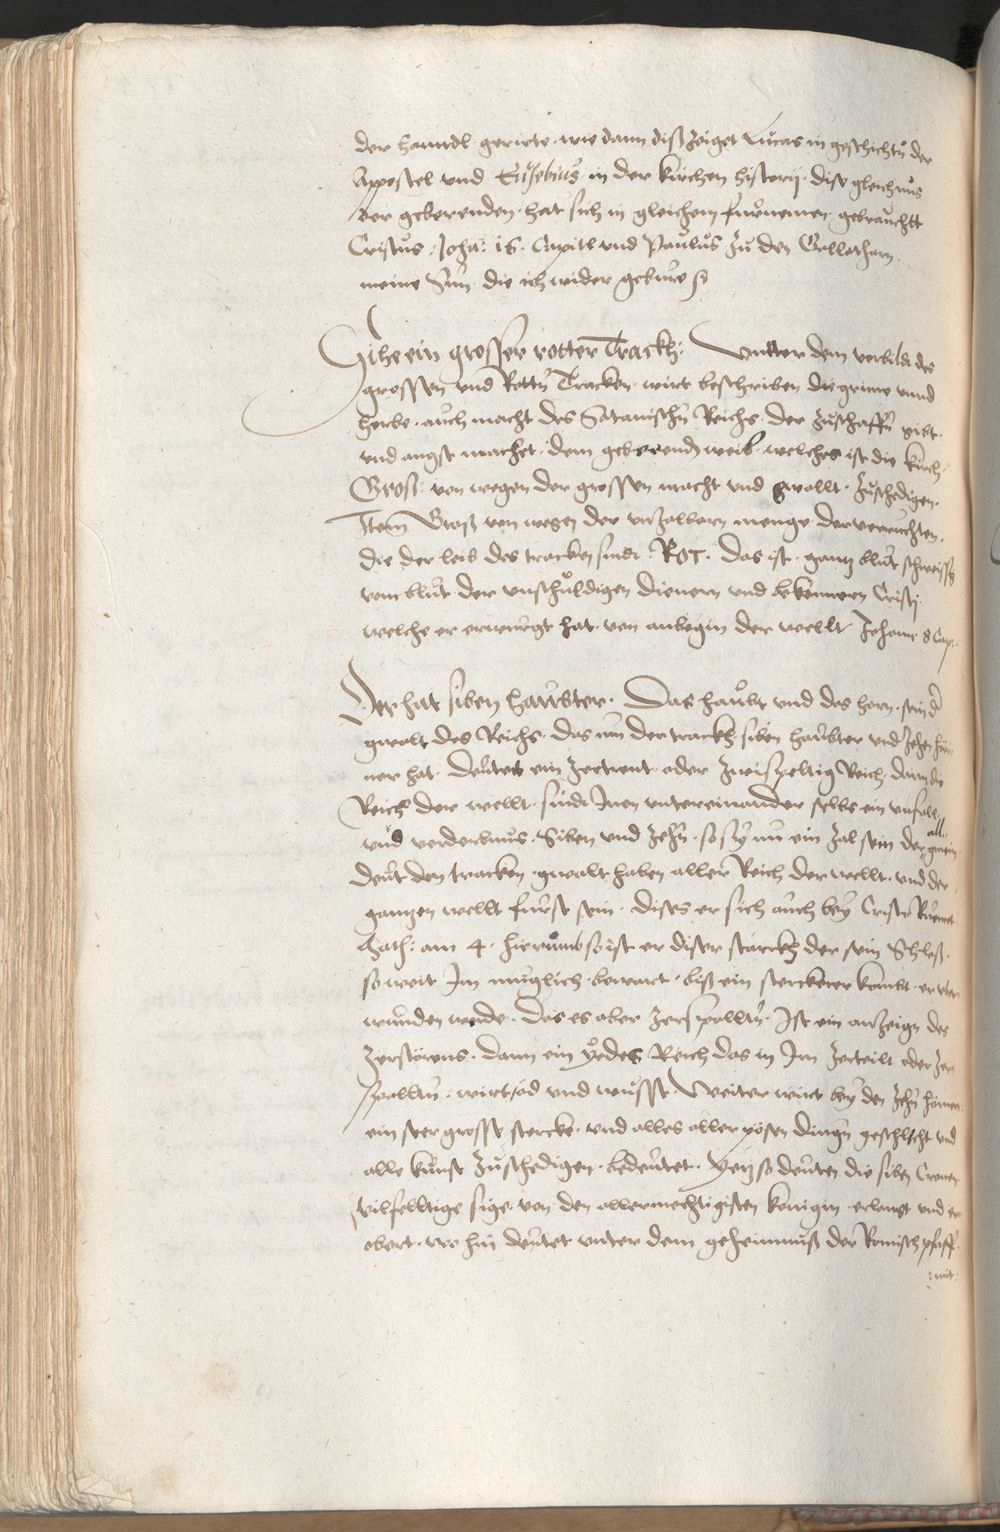 der hanndl geriete. wie dann diß zeiget Lucas in geschichtn der
Appostel vnd Eusebius in der kirchen histori. dise gleichnus
der geberenden. hat sich in gleichem furnemen gebraucht
Cristus. Joha: 16. Capitl vnd Paulus zu den Gallathern.
meine Sün die ich wider gebüre
Sihe ein grosser rotter Trackh. Vnntter dem vorbildt des
grossen vnd Rottn Tracken. wirt beschriben die grime vnnd
herbe. auch macht des Satanischn Reichs. der zuschaffn gibt.
vnd angst machet. dem geberendn weib. welches ist die kirch.
Groß. von wegen der grossen macht vnd gwallt. zuschedigen.
Item Groß von wegen der vnzallbarn menge der verruchten.
die der leib des tracken sindt. Rot. das ist. gantz blut schweissig
vom blut der vnschuldigen dienern vnd bekennern Cristj
welche er erwürgt hat von anbegin der wellt Johann 8 Cap.
Der hat siben haubter. Das haubt vnd das horn. sein d
gwalt des Reichs. das nun der trackh siben haubter vnd zehen hör
ner hat. deutet ein zertrent oder zweispeltig Reich. dann die
Reich der wellt. sindt Inen vntereinander selbs ein vnfall
vnd verderbnus. Siben vnd zehn. so sy nu ein zal sein der all gmein
deut den tracken gwalt haben aller Reich der wellt. vnd der
gantzen wellt furst sein. dises er sich auch bey Cristo Ruemet
Math: am 4. hierumb so ist er diser starckh der sein Schloß.
so weit Im muglich bewart. biß ein sterckerer kombt. er vber
wunden werde. Das es aber zerspalltn. Ist ein anzeign des
zerstörens. dann ein yedes Reich das in Im zerteilt oder zer
spalltn. wirt öd vnd wusst. Weiter wirt bey den zehn hörnern
ein seer grosse stercke. vnd alles aller pösen dingn geschlecht vnd
alle kunst zuschedigen. bedeutet. yetz so deuten die siben Cronen
vilfelltige sige. von den allermechtigisten konigin erlangt vnd er
obert. wo hin deutet vnter dem geheimnuß der Romisch pfaff.
: mit :